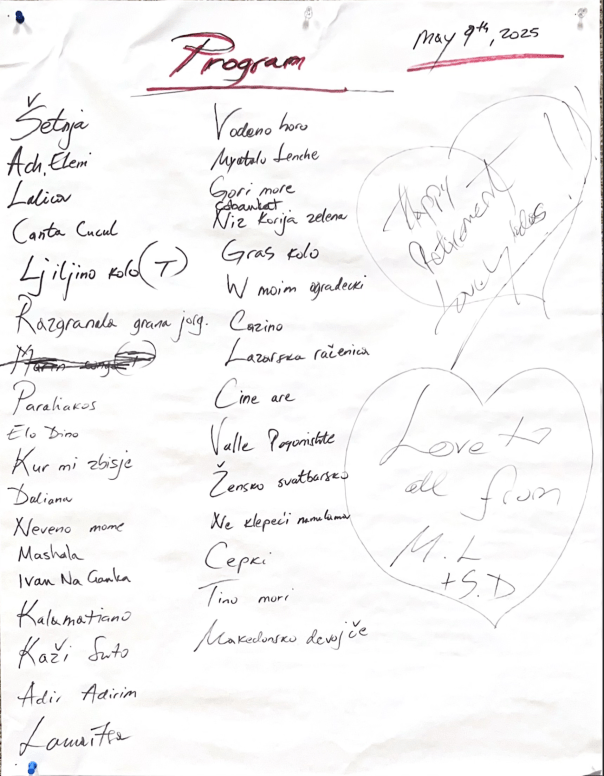 Program
May 9th, 2025
Šetnja
Adn. Eleni
Lalica
Canta Cucul
Ljiljino kolo (T)
Razgranala grana jorg.
Paraliakos
Elo Dino
Kur mi zbisje
Daliana
Neveno mome
Mashala
Ivan Na Cianka
Kalamatiano
Kaži Suto
Adir Adirim
Vodeno horo
Myatalo Lenche
Gori more
Čobankat
Niz Korija zelena
Gras kolo
W moim ogradecki
Cazino
Lazarska račenica
Cine are
Valle Pogonishte
Žensko svatbarsko
Ne klepeći nanulama
Cepki
Tino mori
Makedonsko devojče
Happy
Retirement
Lovely
!!
Love to
all from
M.L
+ S.D